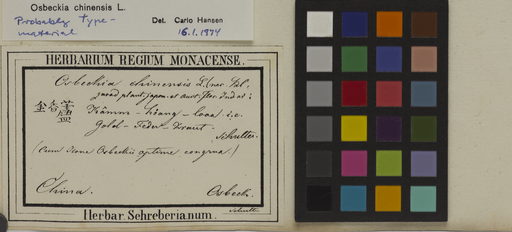 Osbeckia chinensis L.
Probably type-
material
Det. Carlo Hansen
16.1.1974
HERBARIUM REGIUM MONACENSE.
Osbeckia chinensis L. (nec
quod plant. japon. et auct. flor. Ind. or.
Kămm - hiang - loaa i.e.
Gold - Feder - Kraut.
Schultes.
(cum Osbeckii optime congrua.)
China.
Osbeck.
Herbar. Schreberianum.